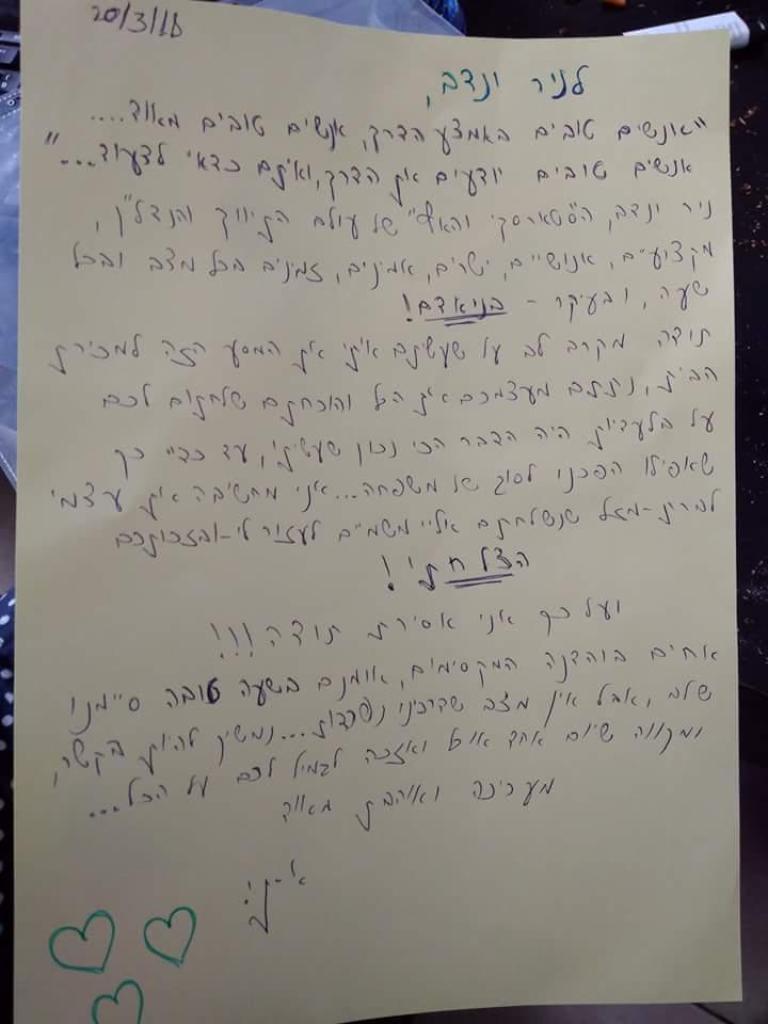 20/3/16
לניר ונדב,
"אנשים טובים באמצע הדרך, אנשים טובים מאוד....
אנשים טובים יודעים את הדרך, ואיתם כדאי לצעוד..."
ניר ונדב, ה"סטארסקי והאץ'" של עולם התיווך והנדל"ן,
מקצועיים, אנושיים, ישרים, אמינים, זמינים בכל מצב ובכל
שעה, ובעיקר - בני אדם!
תודה מקרב לב על שעשיתם איתי את המסע הזה למכירת
הבית, נתתם מעצמכם את הכל והוכחתם שלחתום לכם
על בלעדיות היה הדבר הכי נכון שעשיתי, עד כדי כך
שאפילו הפכנו לסוג של משפחה... אני מחשיבה את עצמי
לברת-מזל שנשלחתם אליי משמיים לעזור לי-ובזכותכם
הצלחתי!
ועל כך אני אסירת תודה!!!
אחים המקסימים, אומנם בשעה טובה סיימנו
שלב, אבל אין מצב שדרכינו נפרדות... נמשיך להיות בקשר,
ומקווה שיום אחד אוכל ואזכה לגמול לכם על הכל...
מעריכה ואוהבת מאוד